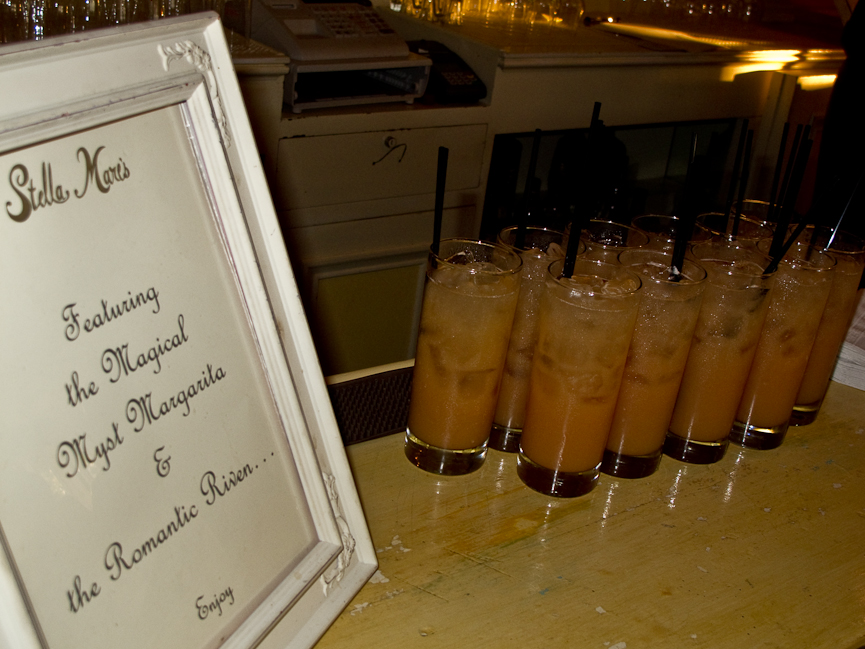 Stella Mare's
Featuring
the Magical
Myst Margarita
&
the Romantic Riven...
Enjoy